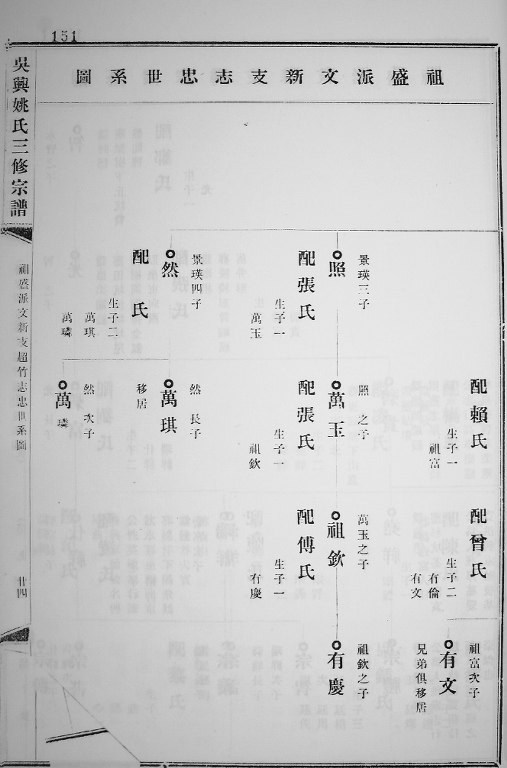 151
吳興姚氏三修宗譜
祖盛派文新支超竹志忠世系圖
廿四
祖盛派文新支志忠世系圖
配賴氏
生子一
祖富
配曾氏
生子二
有倫
有文
祖富次子
有文
兄弟俱移居
景瑛三子
照
配張氏
生子一
萬玉
照之子
萬玉
配張氏
生子一
祖欽
萬玉之子
祖欽
配傅氏
生子一
有慶
祖欽之子
有慶
景瑛四子
然
配 氏
生子二
萬琪
萬璘
然長子
萬琪
移居
然次子
萬璘